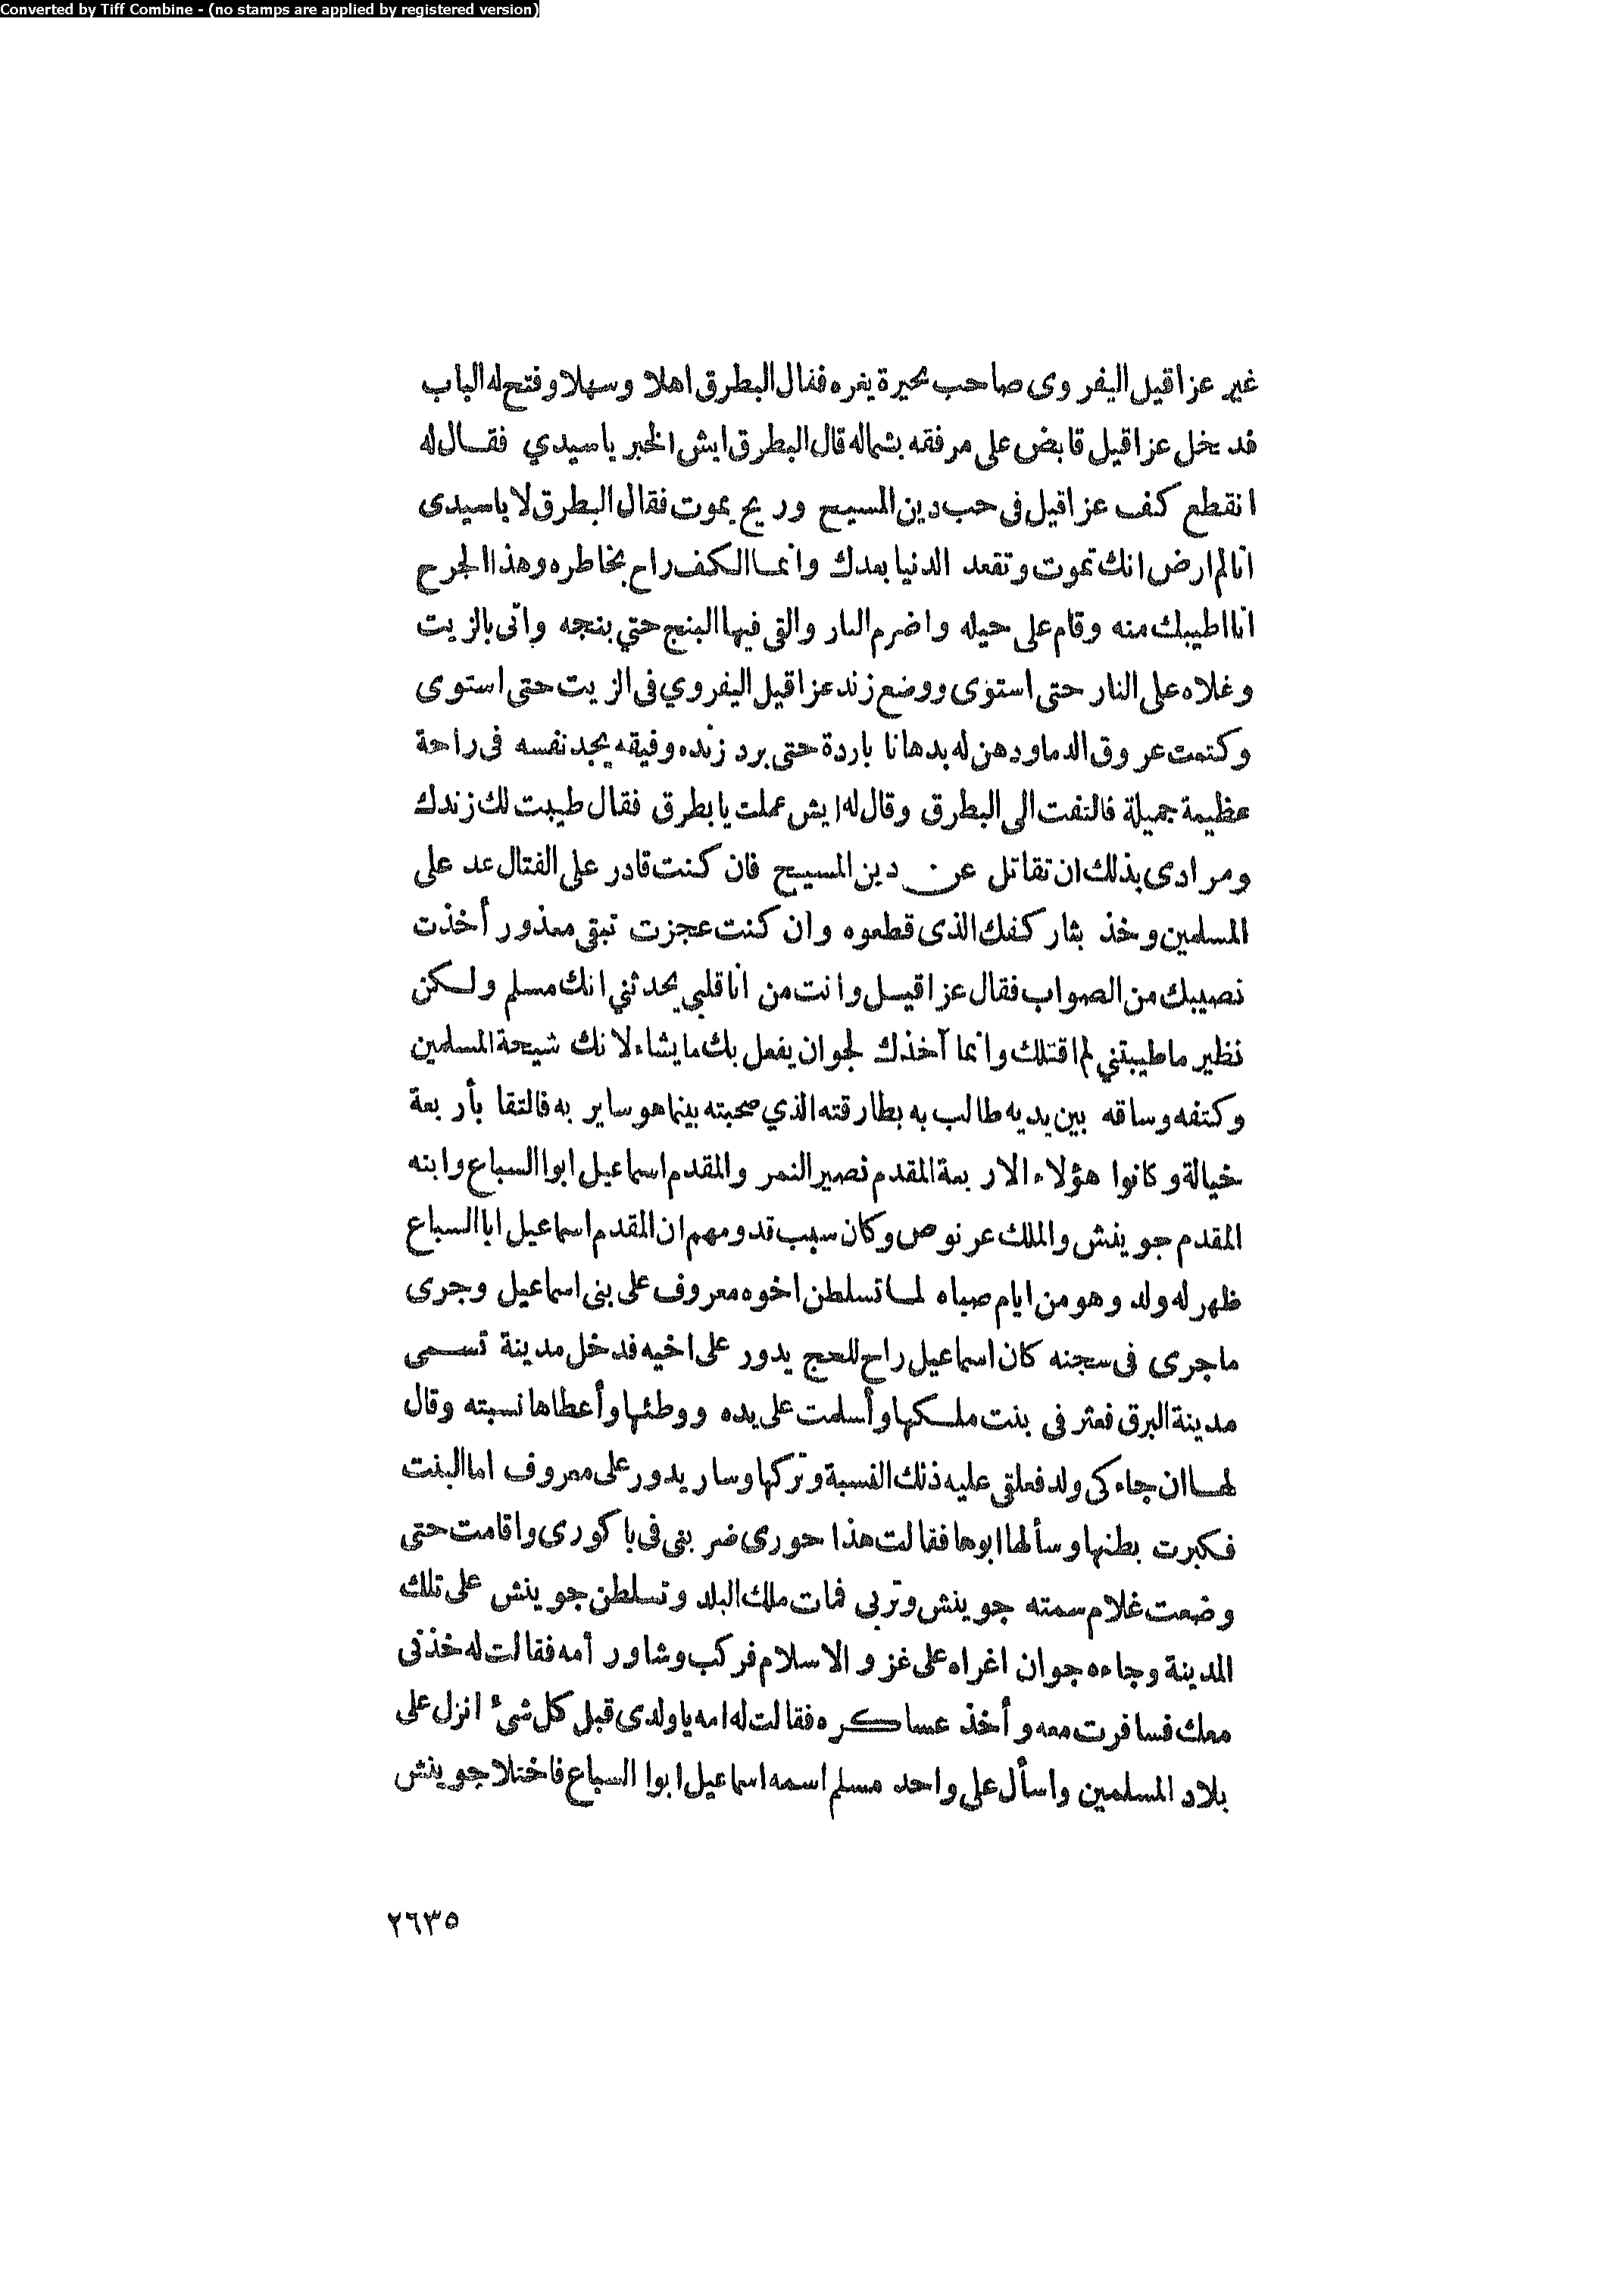 Converted by Tiff Combine - (no stamps are applied by registered version)
غير عزاقيل اليفروى صاحب بحيرة يغره فقال البطرق اهلا وسهلا وفتح له الباب
فدخل عزاقيل قابض على مرفقه بشماله قال البطرق ايش الخبر ياسيدي فقال له
انقطع كف عزاقيل فى حب دين المسيح وريح يموت فقال البطرق لا ياسيدى
انا لم ارض انك تموت وتقعد الدنيا بعدك وانما الكف راح بخاطره وهذا الجرح
انا اطيبك منه وقام على حيله واضرم النار والقى فيها البنج حتي بنجه واتى بالزيت
وغلاه على النار حتى استوى ووضع زند عزاقيل اليفروي فى الزيت حتى استوى
وكتمت عروق الدما ودهن له بدهانا باردة حتى برد زنده وفيقه يجد نفسه فى راحة
عظيمة جميلة فالتفت الى البطرق وقال له ايش عملت يا بطرق فقال طيبت لك زندك
ومرادى بذلك ان تقاتل عن دين المسيح فان كنت قادر على القتال عد على
المسلمين وخذ بثار كفك الذى قطعوه وان كنت عجزت تبقى معذور أخذت
نصيبك من الصواب فقال عزاقيل وانت من انا قلبي يحدثني انك مسلم ولكن
نظير ما طيبتني لم اقتلك وانما آخذك لجوان يفعل بك ما يشاء لانك شيحة المسلمين
وكتفه وساقه بين يديه طالب به بطارقته الذي صحبته بينما هو ساير به فالتقا بأربعة
خيالة وكانوا هؤلاء الاربعة المقدم نصير النمر والمقدم اسماعيل ابوا السباع وابنه
المقدم جوينش والملك عرنوص وكان سبب قدومهم ان المقدم اسماعيل ابا السباع
ظهر له ولد وهو من ايام صباه لما تسلطن اخوه معروف على بنى اسماعيل وجرى
ماجرى فى سجنه كان اسماعيل راح للحج يدور على اخيه فدخل مدينة تسمى
مدينة البرق فعثر فى بنت ملكها وأسلمت على يده ووطئها وأعطاها نسبته وقال
لها ان جاء كى ولد فعلقى عليه ذلك النسبة وتركها وسار يدور على معروف اما البنت
فكبرت بطنها وسألها ابوها فقالت هذا حورى ضربنى فى باكورى واقامت حتى
وضعت غلام سمته جوينش وتربي فمات ملك البلد وتسلطن جوينش على تلك
المدينة وجاءه جوان اغراه على غزو الاسلام فركب وشاور أمه فقالت له خذنى
معك فسافرت معه وأخذ عساكره فقالت له امه ياولدى قبل كل شىء انزل على
بلاد المسلمين واسأل على واحد مسلم اسمه اسماعيل ابوا السباع فاختلا جوينش
٢٦٣٥